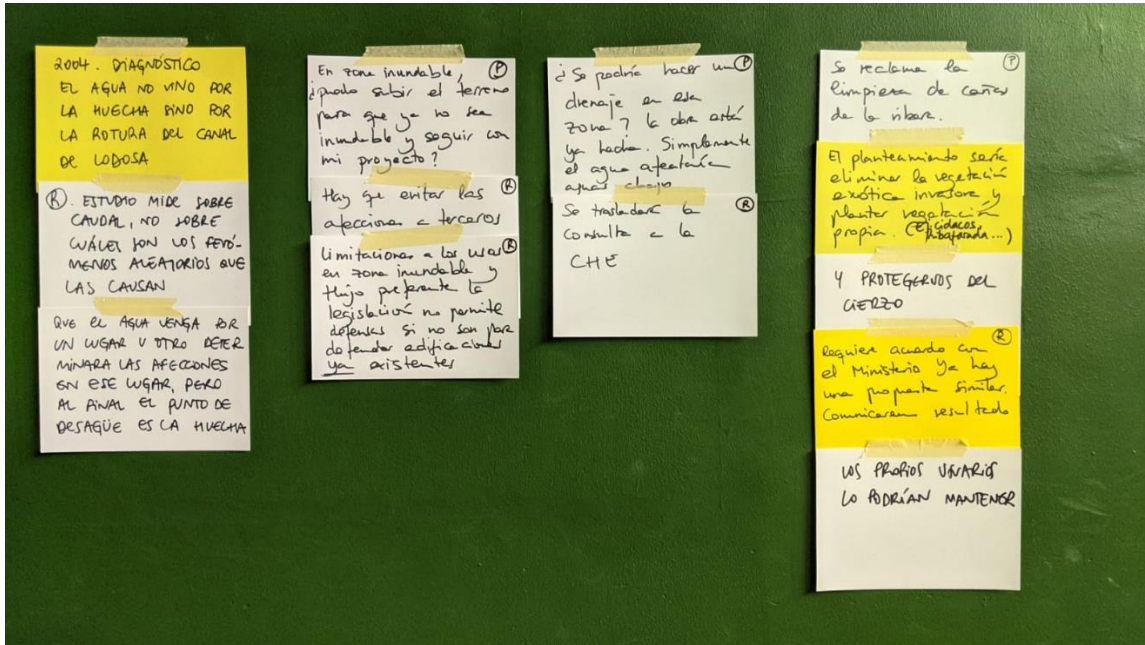 2004. DIAGNÓSTICO
EL AGUA NO VINO POR
LA HUECHA SINO POR
LA ROTURA DEL CANAL
DE LODOSA
R. ESTUDIO MIDE SOBRE
CAUDAL, NO SOBRE
CUÁLES SON LOS FENÓ-
MENOS ALEATORIOS QUE
LAS CAUSAN
QUE EL AGUA VENGA POR
UN LUGAR U OTRO DETER
MINARA LAS AFECCIONES
EN ESE LUGAR, PERO
AL FINAL EL PUNTO DE
DESAGÜE ES LA HUECHA
En zona inundable, P
¿puedo subir el terreno
para que ya no sea
inundable y seguir con
mi proyecto?
Hay que evitar las R
afecciones a terceros
Limitaciones a los usos R
en zona inundable y
flujo preferente la
legislación no permite
defensas si no son para
defender edificaciones
ya existentes
¿Se podría hacer un P
drenaje en esa
zona? la obra está
ya hecha. Simplemente
el agua afectaría
aguas abajo
Se trasladará la R
consulta a la
CHE
Se reclama la P
limpieza de cañas
de la ribera.
El planteamiento sería
eliminar la vegetación
exótica invasora y
plantar vegetación
propia. (Ribaforada...)
Y PROTEGERNOS DEL
CIERZO
Requiere acuerdo con R
el Ministerio Ya hay
una propuesta similar.
Comunicaran resultado
LOS PROPIOS USUARIOS
LO PODRÍAN MANTENER